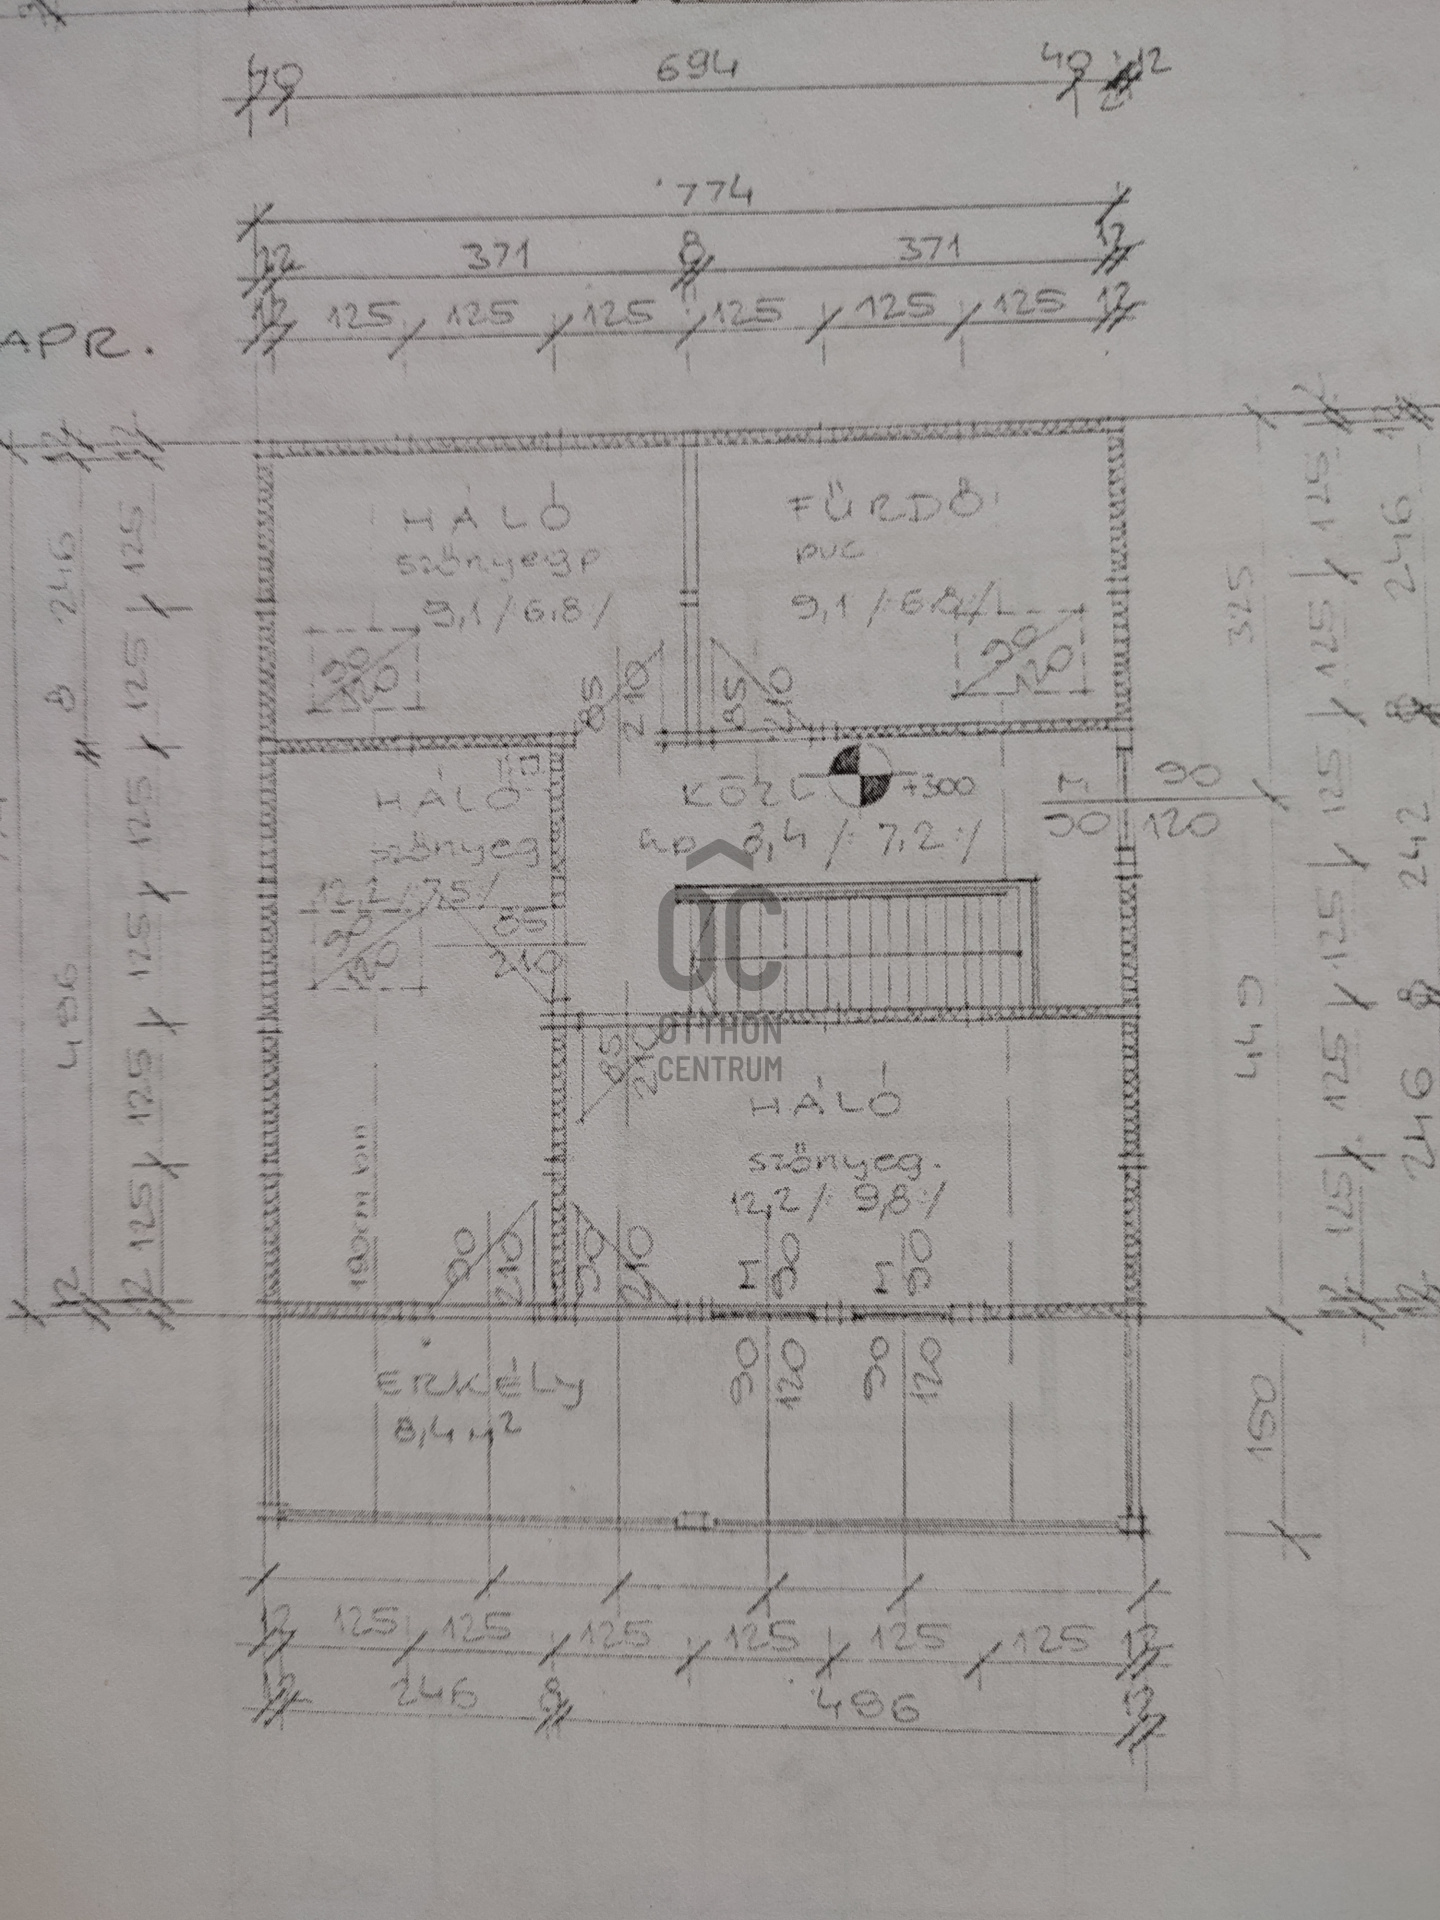 40 694 40 12
774
12 371 8 371 12
12 125 125 125 125 125 125 12
APR.
HÁLÓ
szőnyegp
9,1 /6,8/
90
120
85
210
FÜRDŐ
pvc
9,1 /:6,8:/
90
120
85
210
HÁLÓ
szőnyeg
12,2 /7,5/
90
120
85
210
KÖZL
+300
8,4 /:7,2:/
M 90
90 120
OC
OTTHON
CENTRUM
85
210
HÁLÓ
szőnyeg.
12,2 /: 9,8:/
190cm
90
210
90
210
90
90
90
120
90
120
ERKÉLY
8,4 m²
12 246 8 496 12
12 125 125 125 125 125 125 12
325
449
150
125 125 125 125 125 125
246 8 242 8 246 12
12 125 125 125 125 125 125 12
12 246 8 496 12